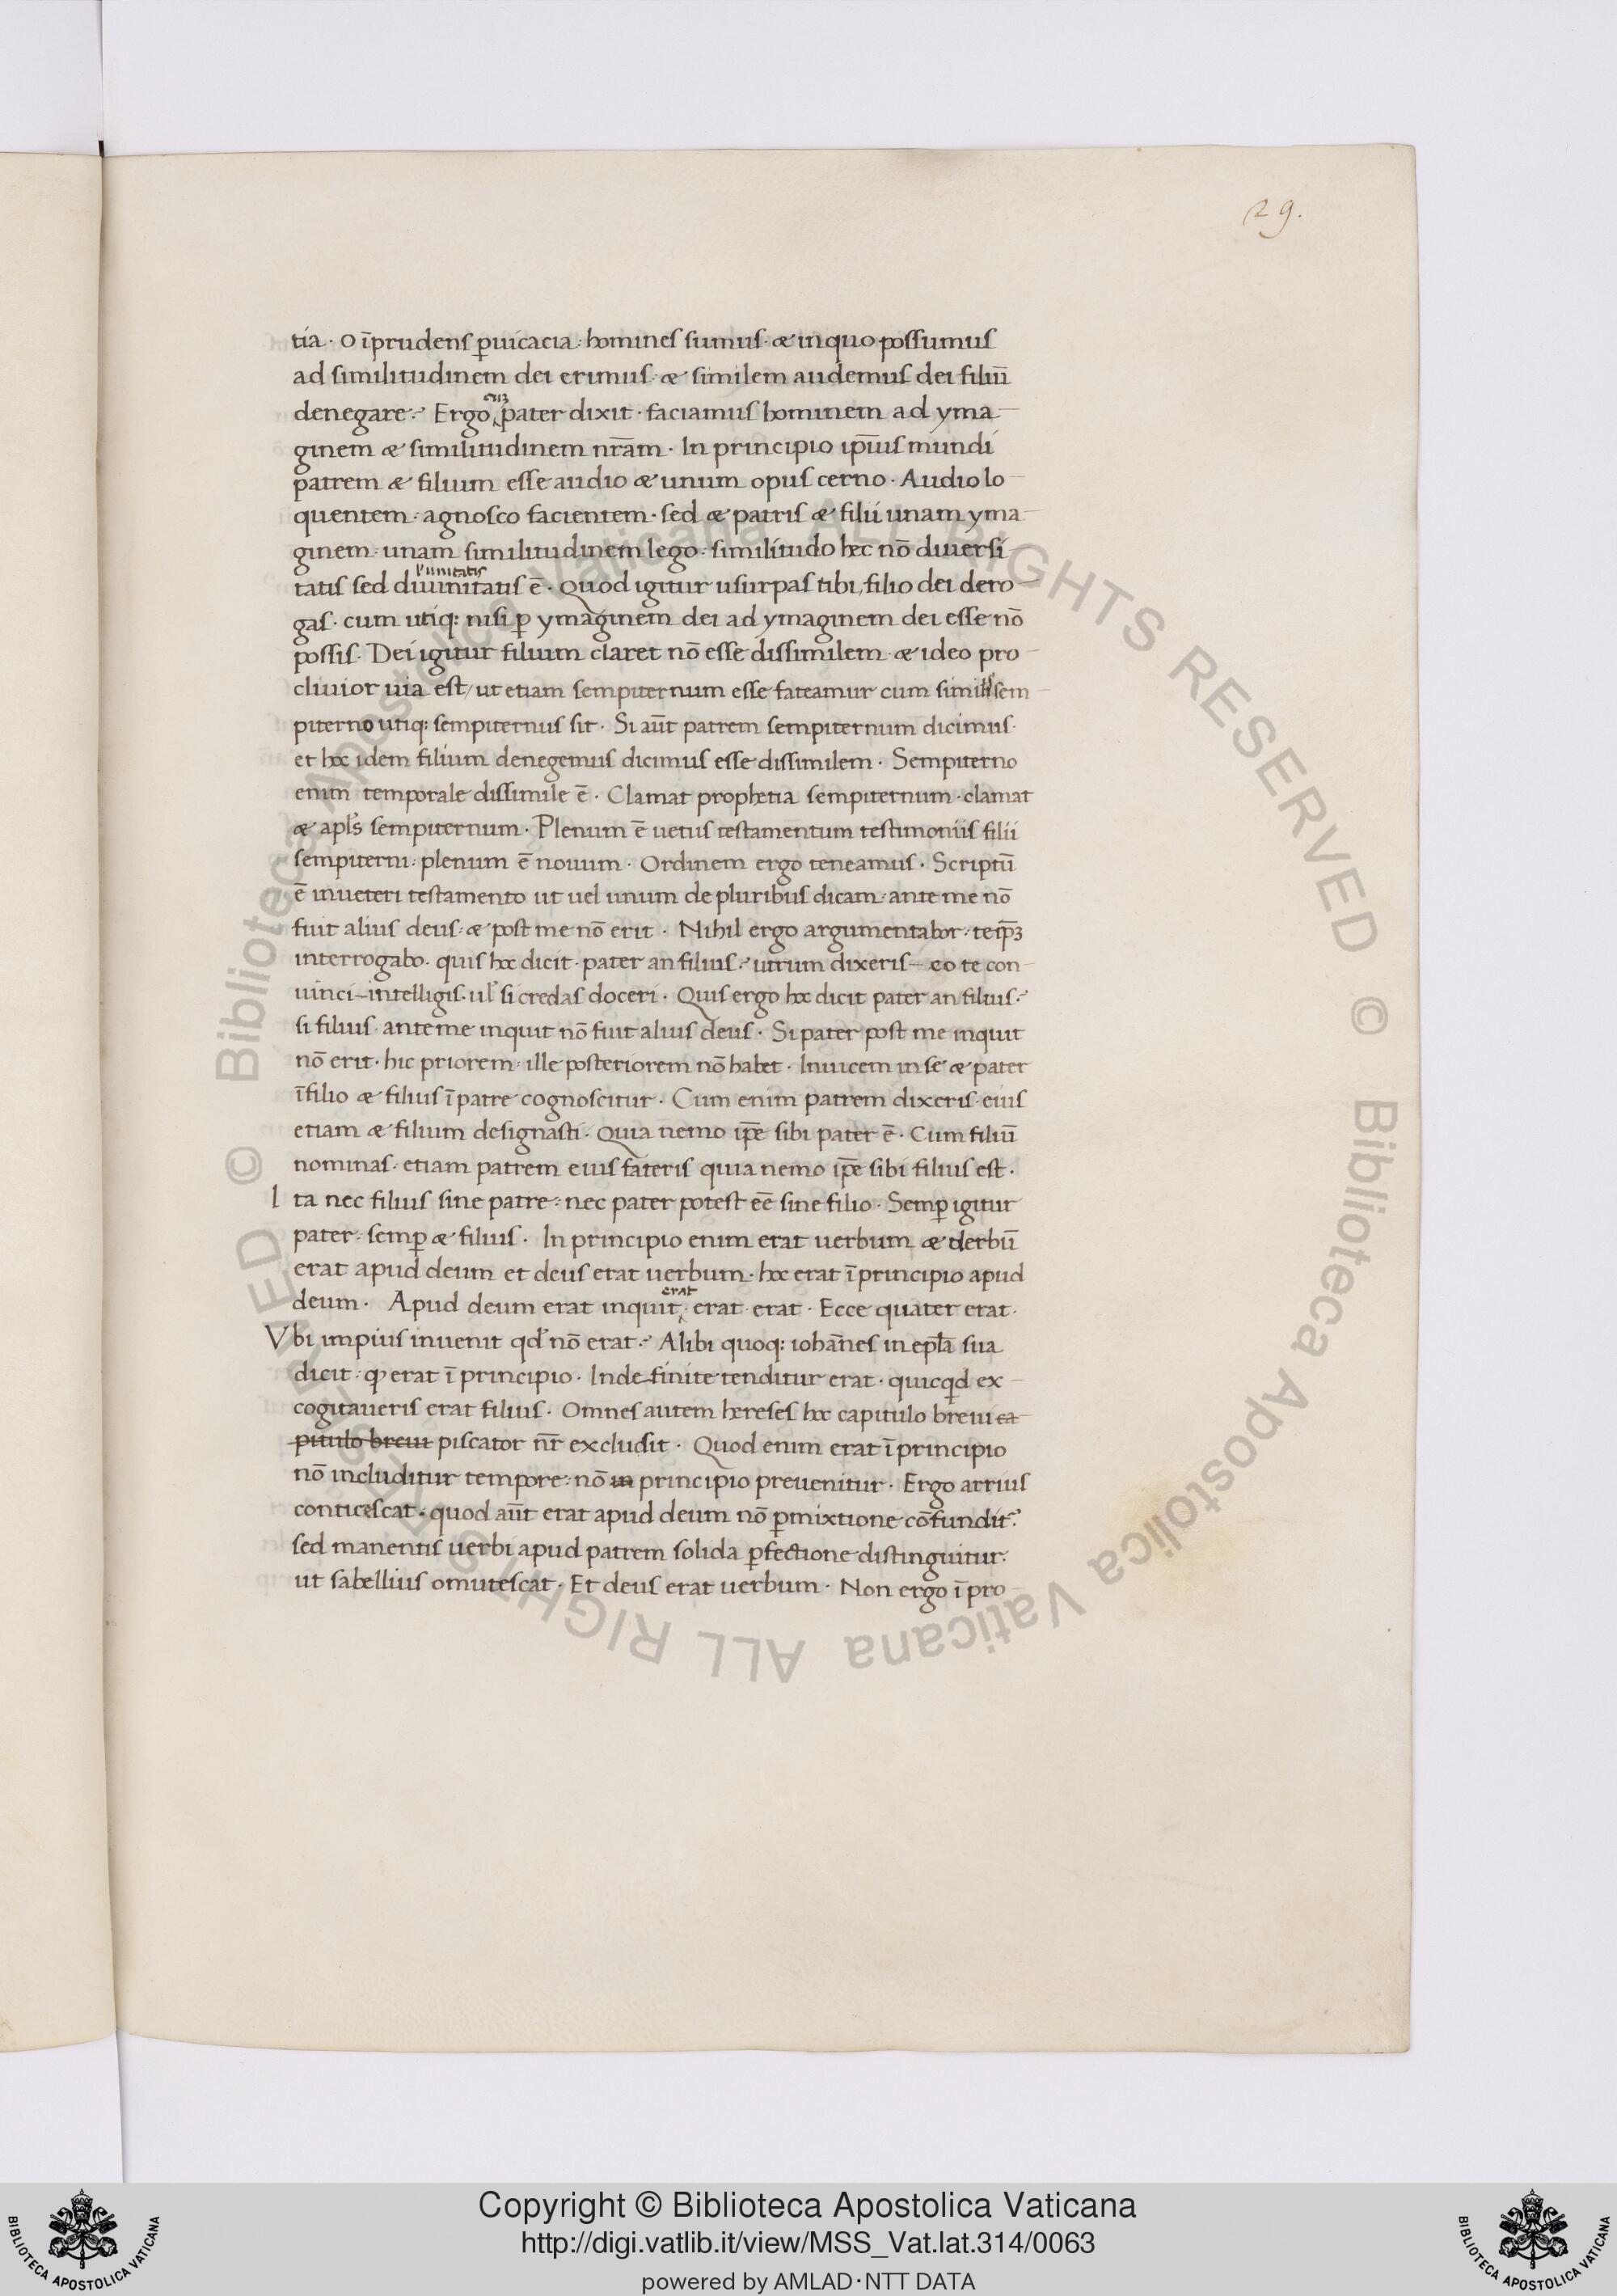 29.
tia · o īprudens ꝑuicacia : homines sumus · æ in quo possumus
ad similitudinem dei erimus · æ similem audemus dei filiū
denegare ? Ergo pater dixit · faciamus hominem ad yma
ginem æ similitudinem nr̄am · In principio ip̄ius mundi
patrem æ filium esse audio æ unum opus cerno · Audio lo
quentem : agnosco facientem · sed æ patris æ filii unam yma
ginem : unam similitudinem lego : similitudo hec nō diuersi
l' unitatis
tatis sed diuinitatis ē · Quod igitur usurpas tibi, filio dei dero
gas · cum utiq: nisi ꝑ ymaginem dei ad ymaginem dei esse nō
possis · Dei igitur filium claret nō esse dissimilem · æ ideo pro
cliuior uia est / ut etiam sempiternum esse fateamur cum similis sem
piterno utiq: sempiternus sit · Si aūt patrem sempiternum dicimus ·
et hoc idem filium denegemus dicimus esse dissimilem · Sempiterno
enim temporale dissimile ē · Clamat prophetia sempiternum · clamat
æ apl̄s sempiternum · Plenum ē uetus testamentum testimoniis filii
sempiterni : plenum ē nouum · Ordinem ergo teneamus · Scriptū
ē in ueteri testamento ut uel unum de pluribus dicam : ante me nō
fuit alius deus : æ post me nō erit · Nihil ergo argumentabor : te ip̄ꝫ
interrogabo · quis hoc dicit · pater an filius ? utrum dixeris – eo te con
uinci – intelligis · ul̄ si credas doceri · Quis ergo hoc dicit pater an filius ?
si filius · ante me inquit nō fuit alius deus · Si pater post me inquit
nō erit · hic priorem : ille posteriorem nō habet · Inuicem in se æ pater
ī filio æ filius ī patre cognoscitur · Cum enim patrem dixeris · eius
etiam æ filium designasti · Quia nemo ip̄e sibi pater ē · Cum filiū
nominas · etiam patrem eius fateris quia nemo ip̄e sibi filius est ·
I ta nec filius sine patre : nec pater potest eē sine filio · Semꝑ igitur
pater : semꝑ æ filius · In principio enim erat uerbum æ derbū
erat apud deum et deus erat uerbum · hoc erat ī principio apud
erat
deum · Apud deum erat inquit · erat · erat · Ecce quater erat ·
V bi impius inuenit qd̄ nō erat ? Alibi quoq: iohānes in epl̄a sua
dicit : ꝙ erat ī principio · Indefinite tenditur erat · quicqd ex
cogitaueris erat filius · Omnes autem hereses hoc capitulo breui ca
pitulo breui piscator nr̄ excludit · Quod enim erat ī principio
nō includitur tempore : nō in principio preuenitur · Ergo arrius
conticescat · quod aūt erat apud deum nō ꝑmixtione cōfundit᷑ :
sed manentis uerbi apud patrem solida ꝑfectione distinguitur :
ut sabellius omutescat · Et deus erat uerbum · Non ergo ī pro
© Biblioteca Apostolica Vaticana ALL RIGHTS RESERVED © Biblioteca Apostolica Vaticana ALL RIGHTS RESERVED
Copyright © Biblioteca Apostolica Vaticana
http://digi.vatlib.it/view/MSS_Vat.lat.314/0063
powered by AMLAD·NTT DATA
BIBLIOTECA APOSTOLICA VATICANA
BIBLIOTECA APOSTOLICA VATICANA